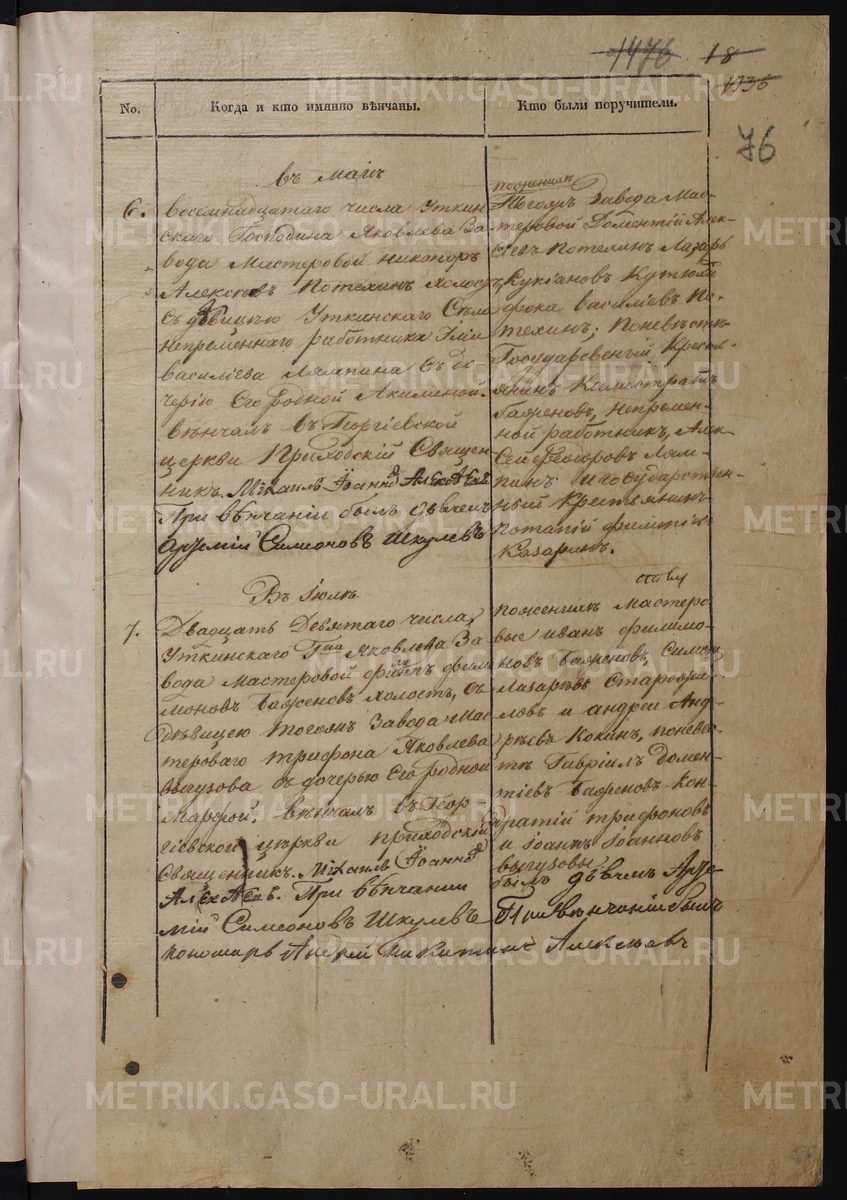 1476 18
1736
76
No. Когда и кто имянно вѣнчаны. Кто были поручители.
въ маиѣ
6. восемнадцатаго числа Уткин
скаго Господина Яковлева За
вода Мастеровой Никоноръ
Алексѣевъ Потехинъ холостъ
съ дѣвицею Уткинскаго Села
непременнаго работника
василіева Ляпина съ до
черію Его родной Акилиной.
вѣнчалъ въ Георгіевской
церкви Приходскій Священ
никъ Михаилъ Іоанновъ Алексѣевъ
При вѣнчаніи былъ дьячекъ
Артемій Симеоновъ Шкулевъ
поженихѣ
Тогожъ Завода Мас-
теровой Доментій Алек-
сѣевъ Потехинъ Лазарь
фока василіевъ По-
техинъ; Поневѣстѣ
Государсвеный Кресть-
янинъ Калистратъ
Баяреновъ, непремен-
ной работникъ, Алек-
сей Феодоровъ Лям-
пинъ и государствен-
ный Крестьянинъ
Потапій
Казаринъ.
Въ Іюлѣ
7. Двадцать Девятаго числа,
Уткинскаго Гна Яковлева За
вода мастеровой филипъ фили
моновъ Баяреновъ холостъ, съ
дѣвицею тогожъ Завода Мас
тероваго трифона Яковлева
Выгузова съ дочерью Его родной
Марфой. вѣнчалъ въ Геор
гіевской церкви приходскій
Священникъ. Михаилъ Іоанновъ
Алексѣевъ. При вѣнчаніи
мій Симеоновъ Шкулевъ
пономарь Андрей Никитинъ Алексѣевъ
поженихѣ мастеро
вые иванъ филимо-
новъ Баяреновъ, Симеонъ
Лазаревъ
ловъ и андреи Анд-
рѣевъ Кокинъ, поневѣс-
тѣ Гавріилъ Домен-
тіевъ Баяреновъ Кон-
дратій трифоновъ
и Іоаннъ Іоанновъ
выгузовы
былъ дьячекъ Арте-
При вѣнчаніи былъ
METRIKI.GASO-URAL.RU